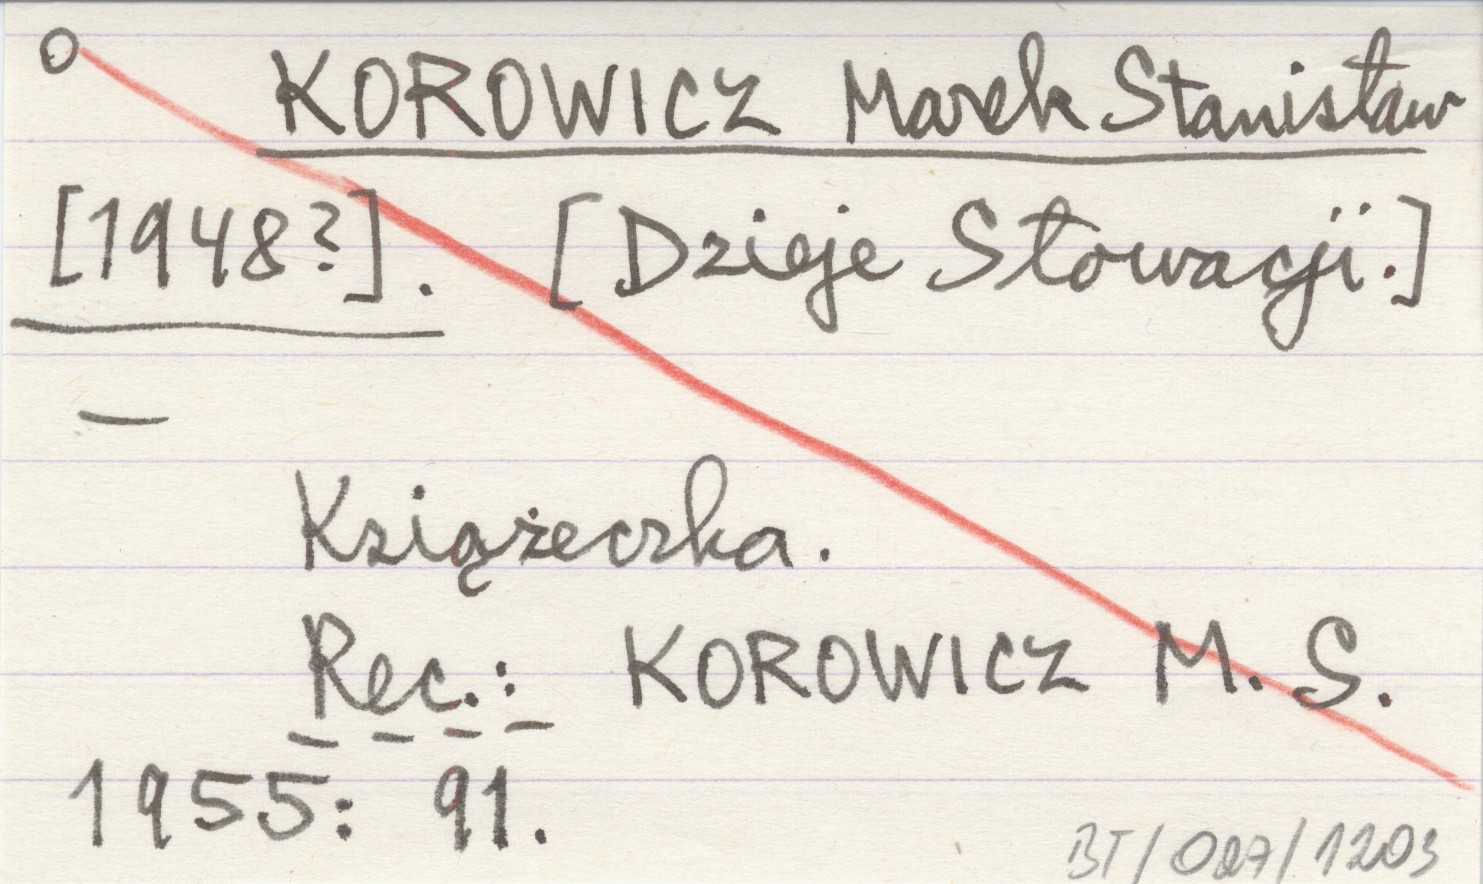 O KOROWICZ Marek Stanisław
[1948?]. [Dzieje Słowacji.]
—
Książeczka.
Rec.: KOROWICZ M. S.
1955: 91.
BT/027/1203